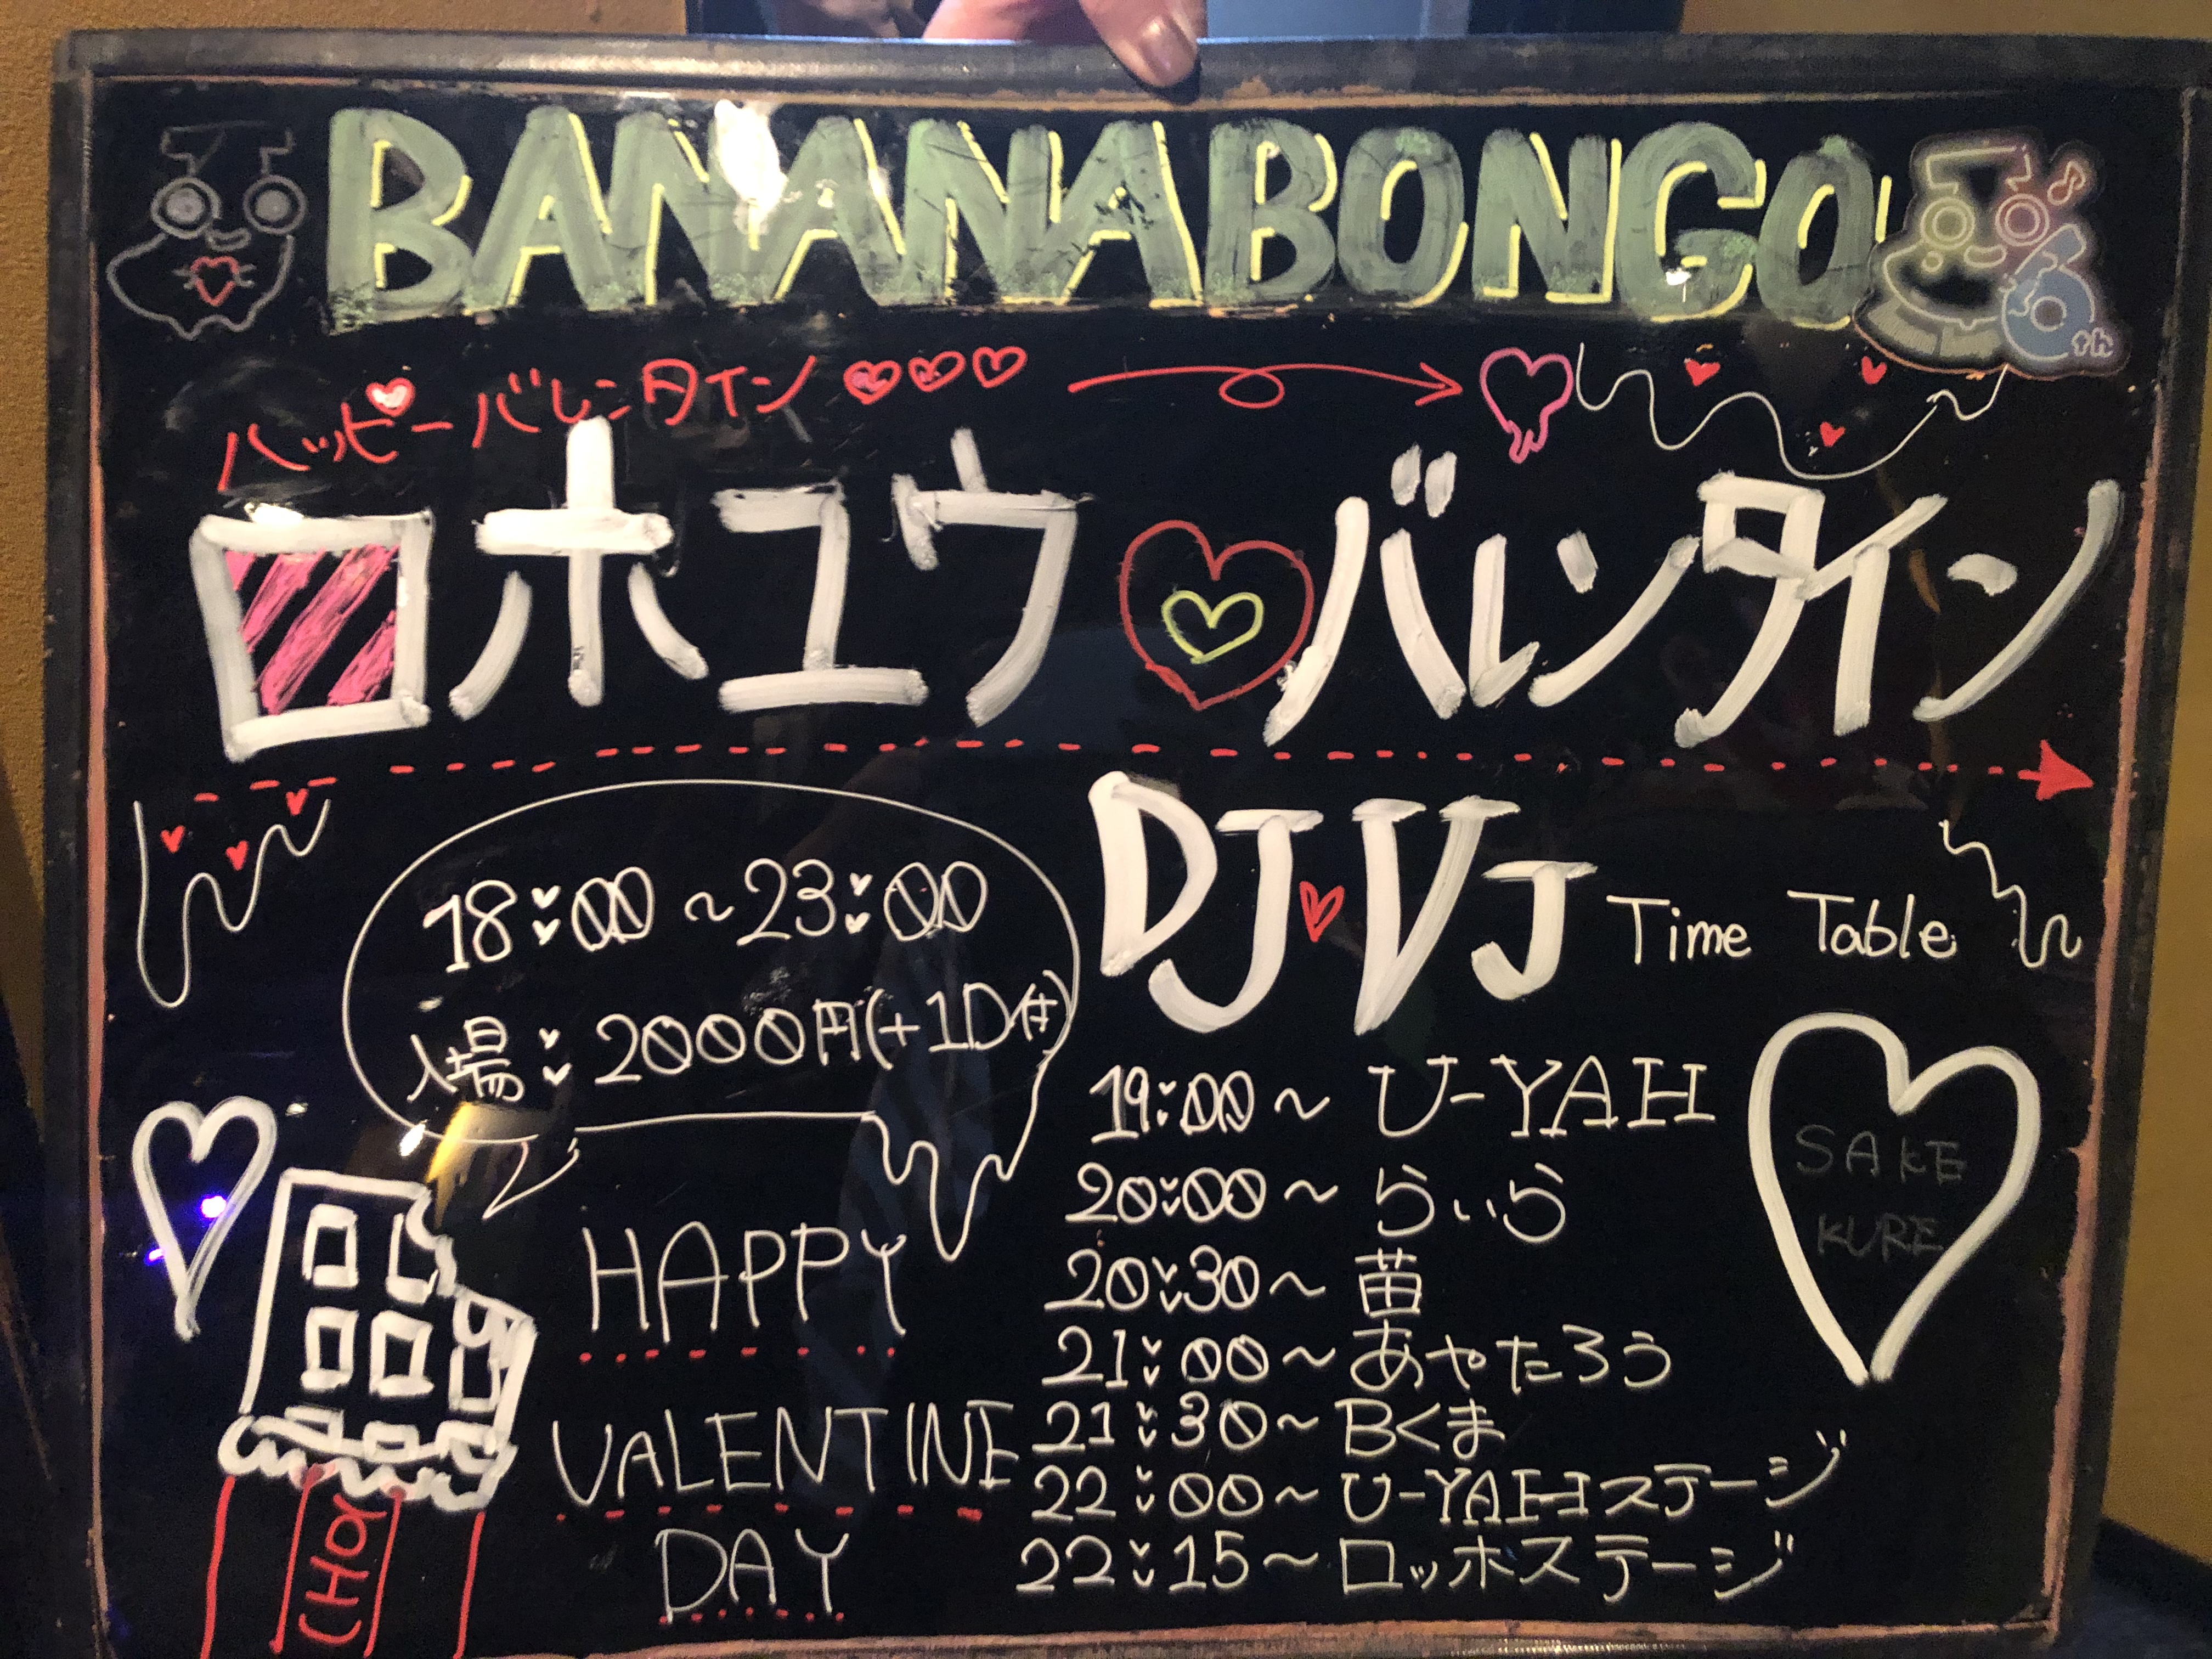 BANANABONGO
6th
ハッピーバレンタイン
ロホユウ バレンタイン
18:00～23:00
入場:2000円(+1D付)
DJ VJ Time Table
19:00～U-YAH
20:00～らいら
20:30～苗
21:00～あやたろう
21:30～Bくま
22:00～U-YAHステージ
22:15～ロッホステージ
SAKE
KURE
HAPPY
VALENTINE
DAY
CHO